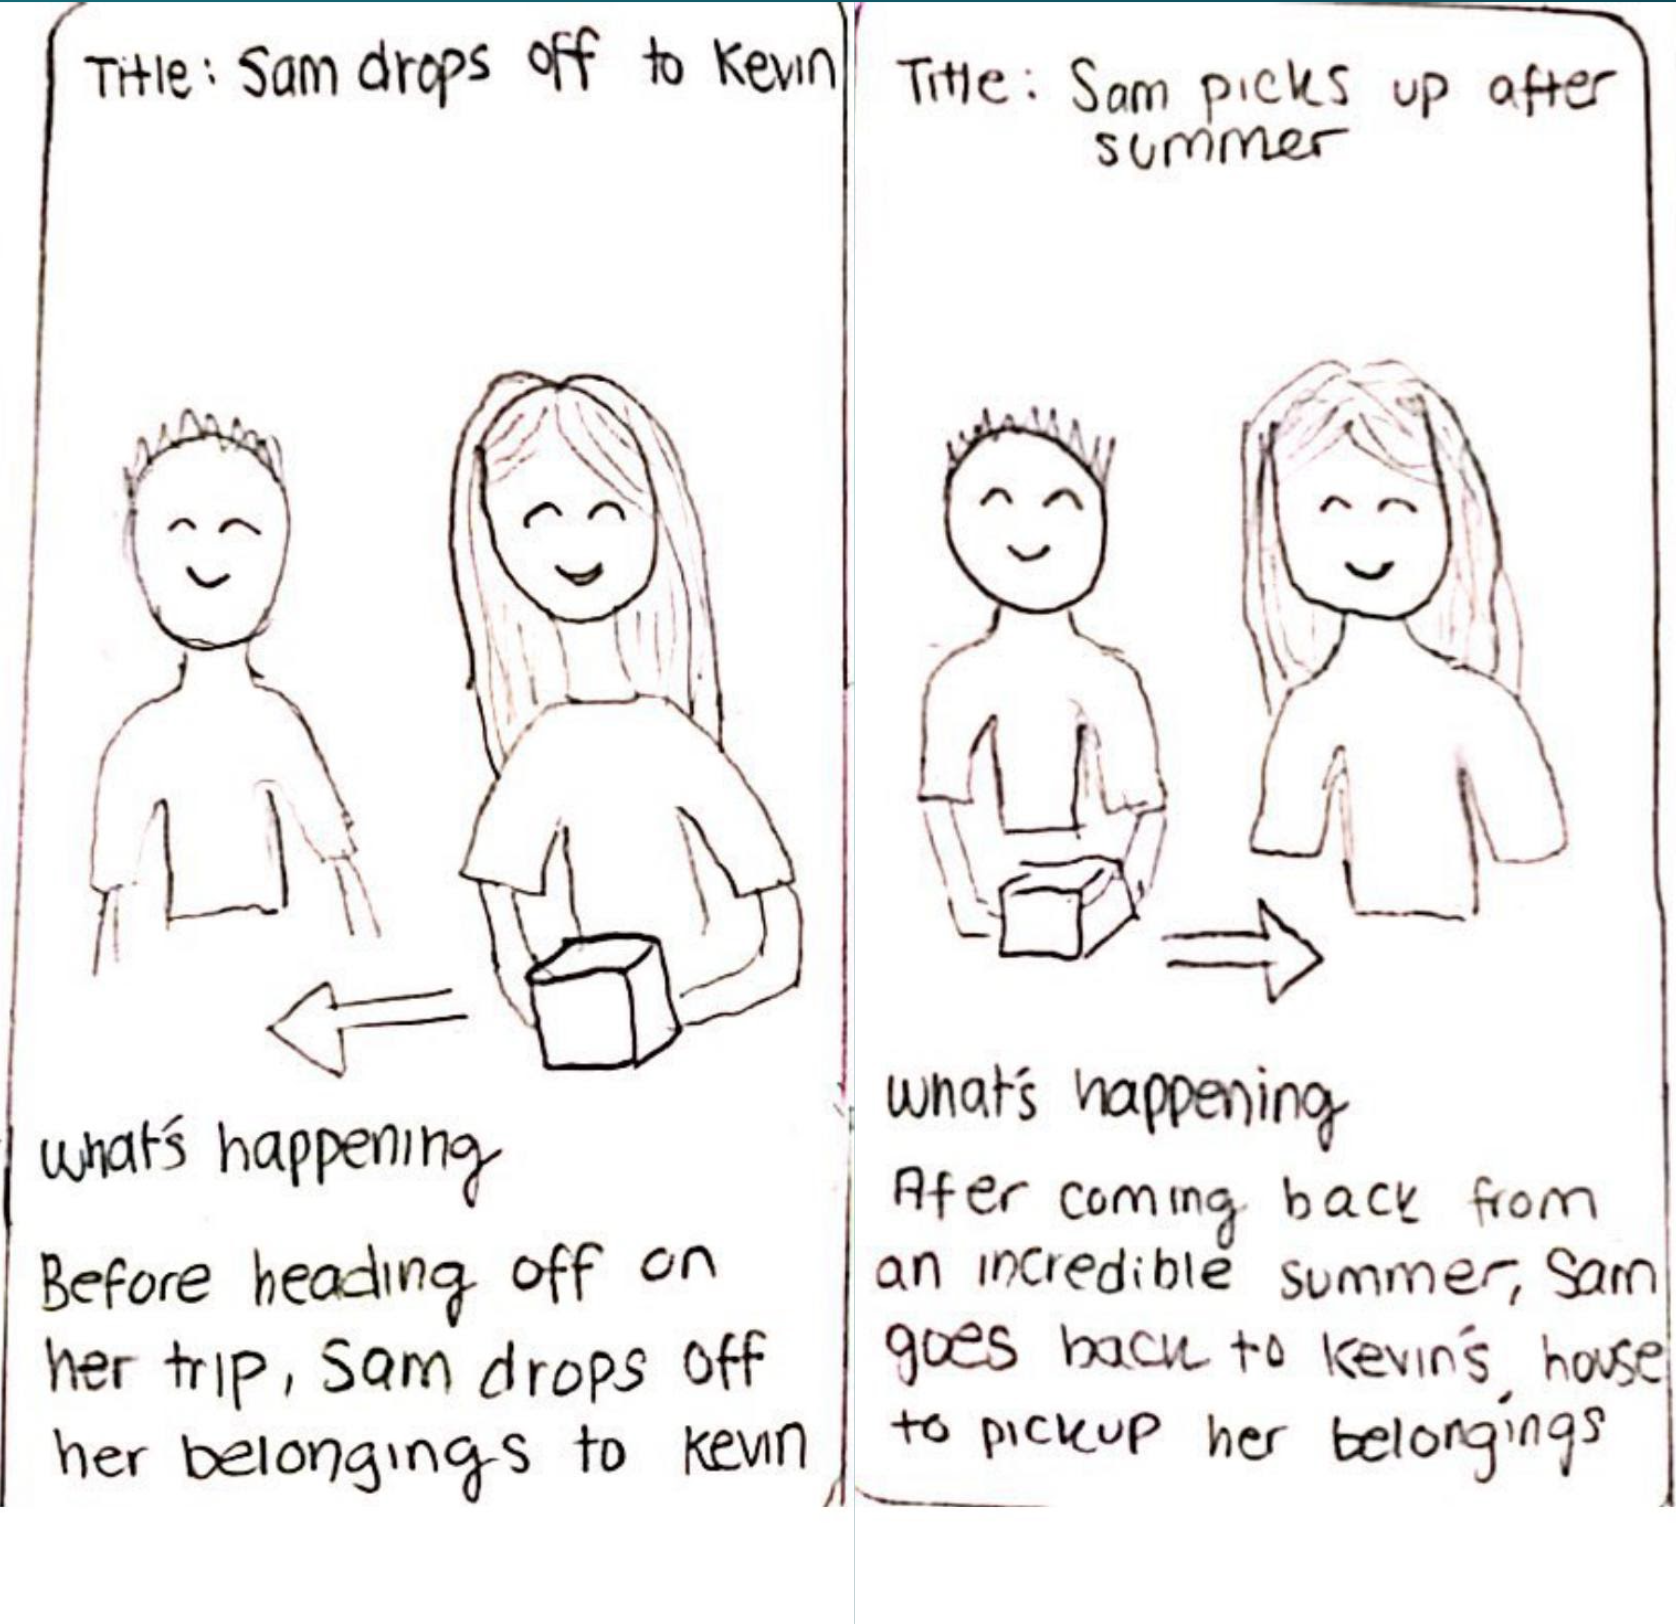 Title: Sam drops off to Kevin
what's happening
Before heading off on
her trip, Sam drops off
her belongings to Kevin
Title: Sam picks up after
summer
what's happening
Afer coming back from
an incredible summer, Sam
goes back to Kevin's house
to pickup her belongings